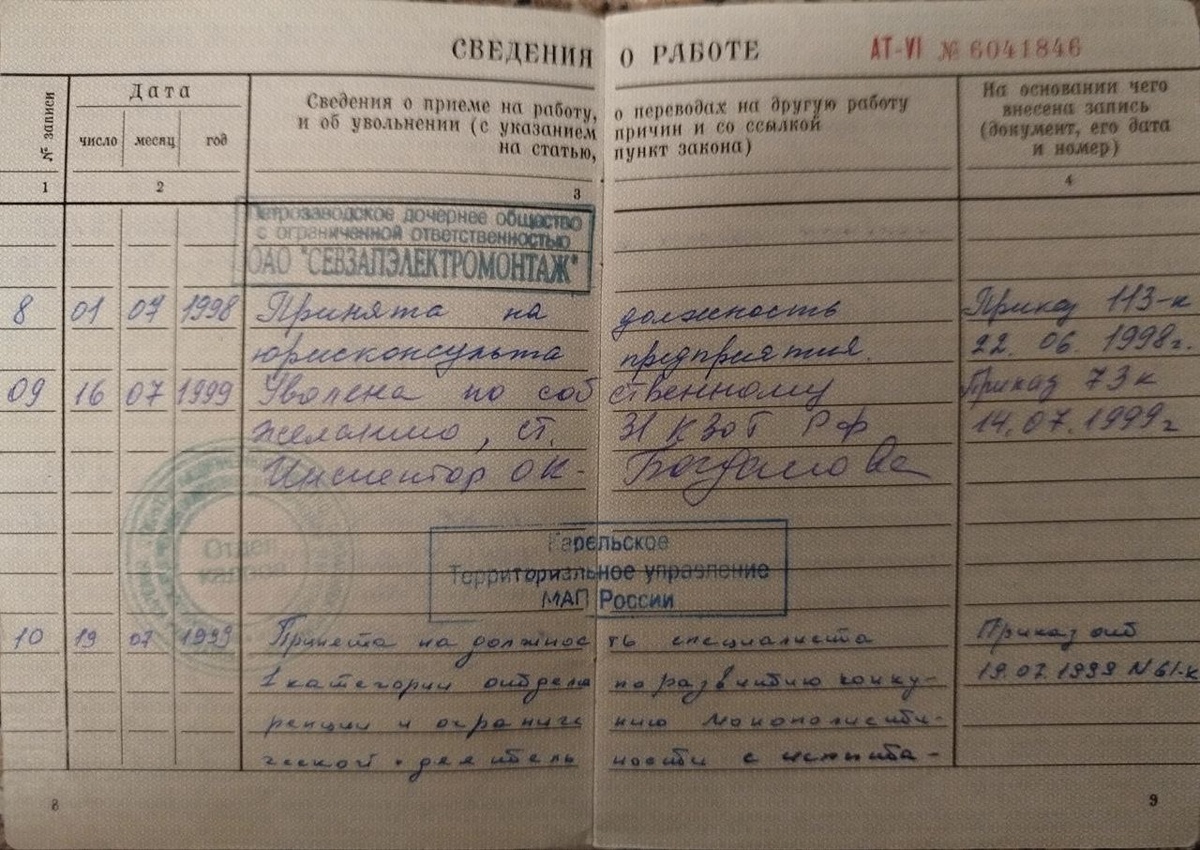 СВЕДЕНИЯ О РАБОТЕ АТ-VI № 6041846
№ записи
Дата
число месяц год
Сведения о приеме на работу, о переводах на другую работу
и об увольнении (с указанием причин и со ссылкой
на статью, пункт закона)
На основании чего
внесена запись
(документ, его дата
и номер)
1 2 3 4
Петрозаводское дочернее общество
с ограниченной ответственностью
ОАО "СЕВЗАПЭЛЕКТРОМОНТАЖ"
8 01 07 1998 Принята на должность Приказ 113-к
юрисконсульта предприятия. 22.06.1998г.
09 16 07 1999 Уволена по собственному Приказ 73к
желанию, ст. 31 КЗоТ РФ 14.07.1999г
Инспектор ОК- Богданова
Отдел
кадров
Карельское
Территориальное управление
МАП России
10 19 07 1999 Принята на должность специалиста Приказ от
1 категории отдела по развитию конку- 19.07.1999 N 61-к
ренции и ограничению монополисти-
ческой деятельности с испыта-
8 9